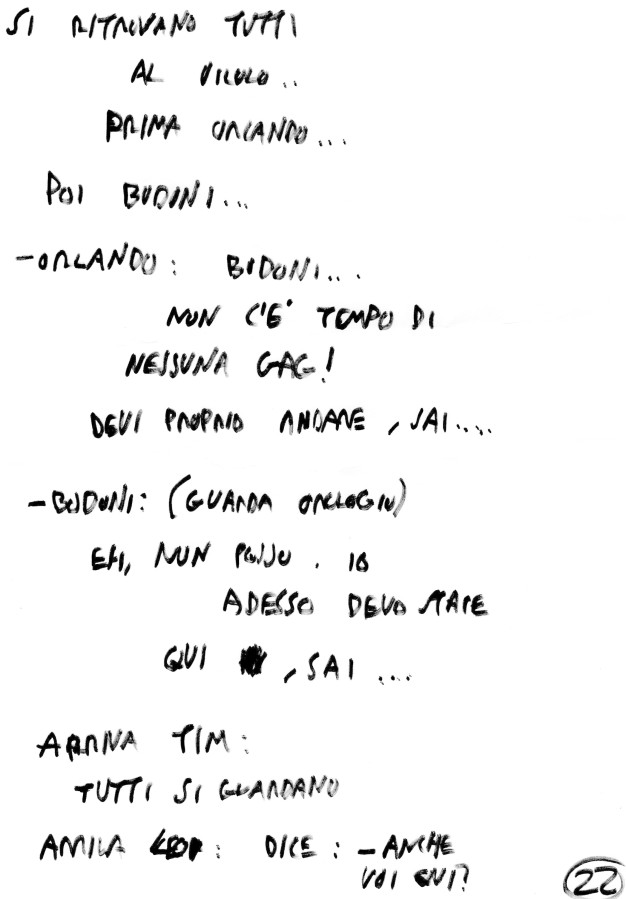 SI RITROVANO TUTTI
AL VICOLO..
PRIMA ORLANDO...
POI BODONI...
-ORLANDO: BODONI...
NON C'E' TEMPO DI
NESSUNA GAG!
DEVI PROPRIO ANDARE, SAI....
-BODONI: (GUARDA OROLOGIO)
EH, NON POSSO. IO
ADESSO DEVO STARE
QUI, SAI ...
ARRIVA TIM:
TUTTI SI GUARDANO
DICE: -ANCHE
VOI QUI?
22